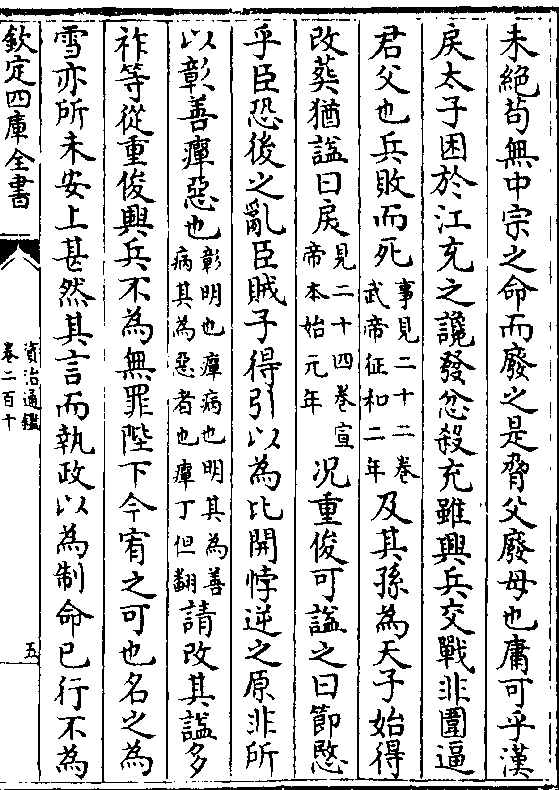 未絶苟無中宗之命而廢之是脅父廢母也庸可乎漢
戾太子困於江充之讒發忿殺充雖興兵交戰非圍逼
君父也兵敗而死事見二十二卷武帝征和二年及其孫為天子始得
改葬猶諡曰戾見二十四卷宣帝本始元年况重俊可諡之曰節愍
乎臣恐後之亂臣賊子得引以為比開悖逆之原非所
以彰善癉惡也彰明也癉病也明其為善病其為惡者也癉丁但翻請改其諡多
祚等從重俊興兵不為無罪陛下今宥之可也名之為
雪亦所未安上甚然其言而執政以為制命已行不為
欽定四庫全書
資治通鑑
卷二百十
五